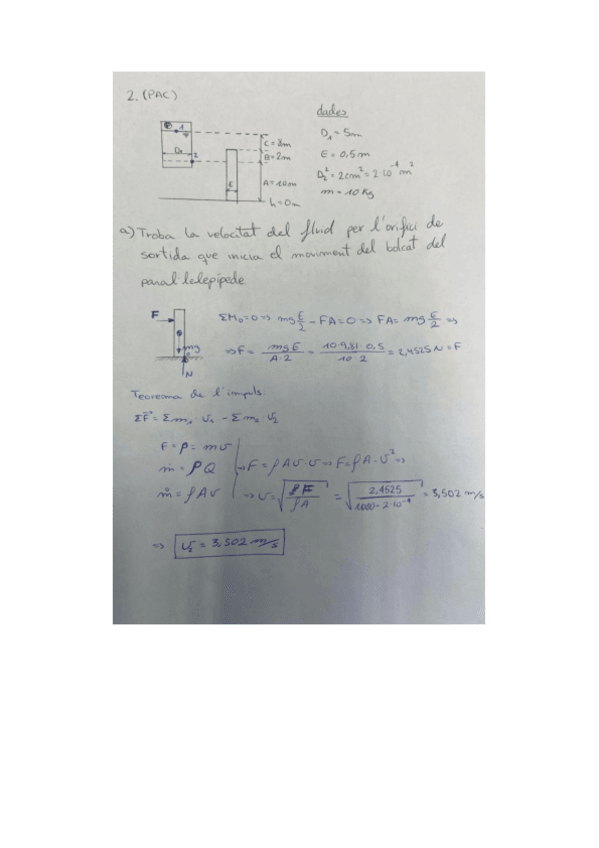 2. (PAC)
dades
D₁ = 5m
E = 0,5m
D₂² = 2cm² = 2·10⁻⁴ m²
m = 10 Kg
1
D₁
2
C = 3m
B = 2m
A = 10m
h = 0m
E
a) Troba la velocitat del fluid per l'orifici de
sortida que inicia el moviment del bolcat del
paral·lelepípede
F
mg
N
ΣM₀=0 => mg E/2 - FA=0 => FA= mg E/2 =>
=> F = mgE/A·2 = 10·9,81·0,5/10·2 = 2,4525 N = F
Teorema de l'impuls:
ΣF = Σm₁·v₁ - Σm₂·v₂
F = p = mv
ṁ = ρQ
ṁ = ρAv
=> F = ρAv·v => F = ρA·v² =>
=> v = √F/ρA = √2,4525/1000·2·10⁻⁴ = 3,502 m/s
=> v₂ = 3,502 m/s